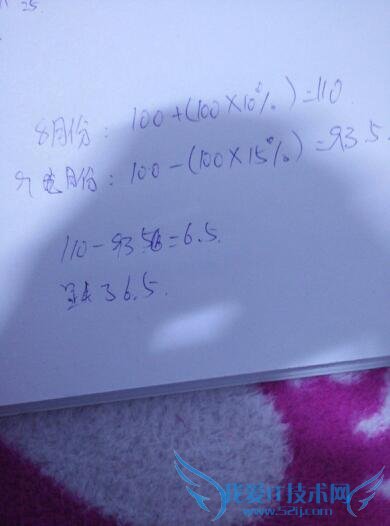 25
8月份：100+(100×10%)=110
九月份：100-(100×15%)=93.5
110-93.5=6.5.
了6.5.
我爱IT技术网
www.52ij.com